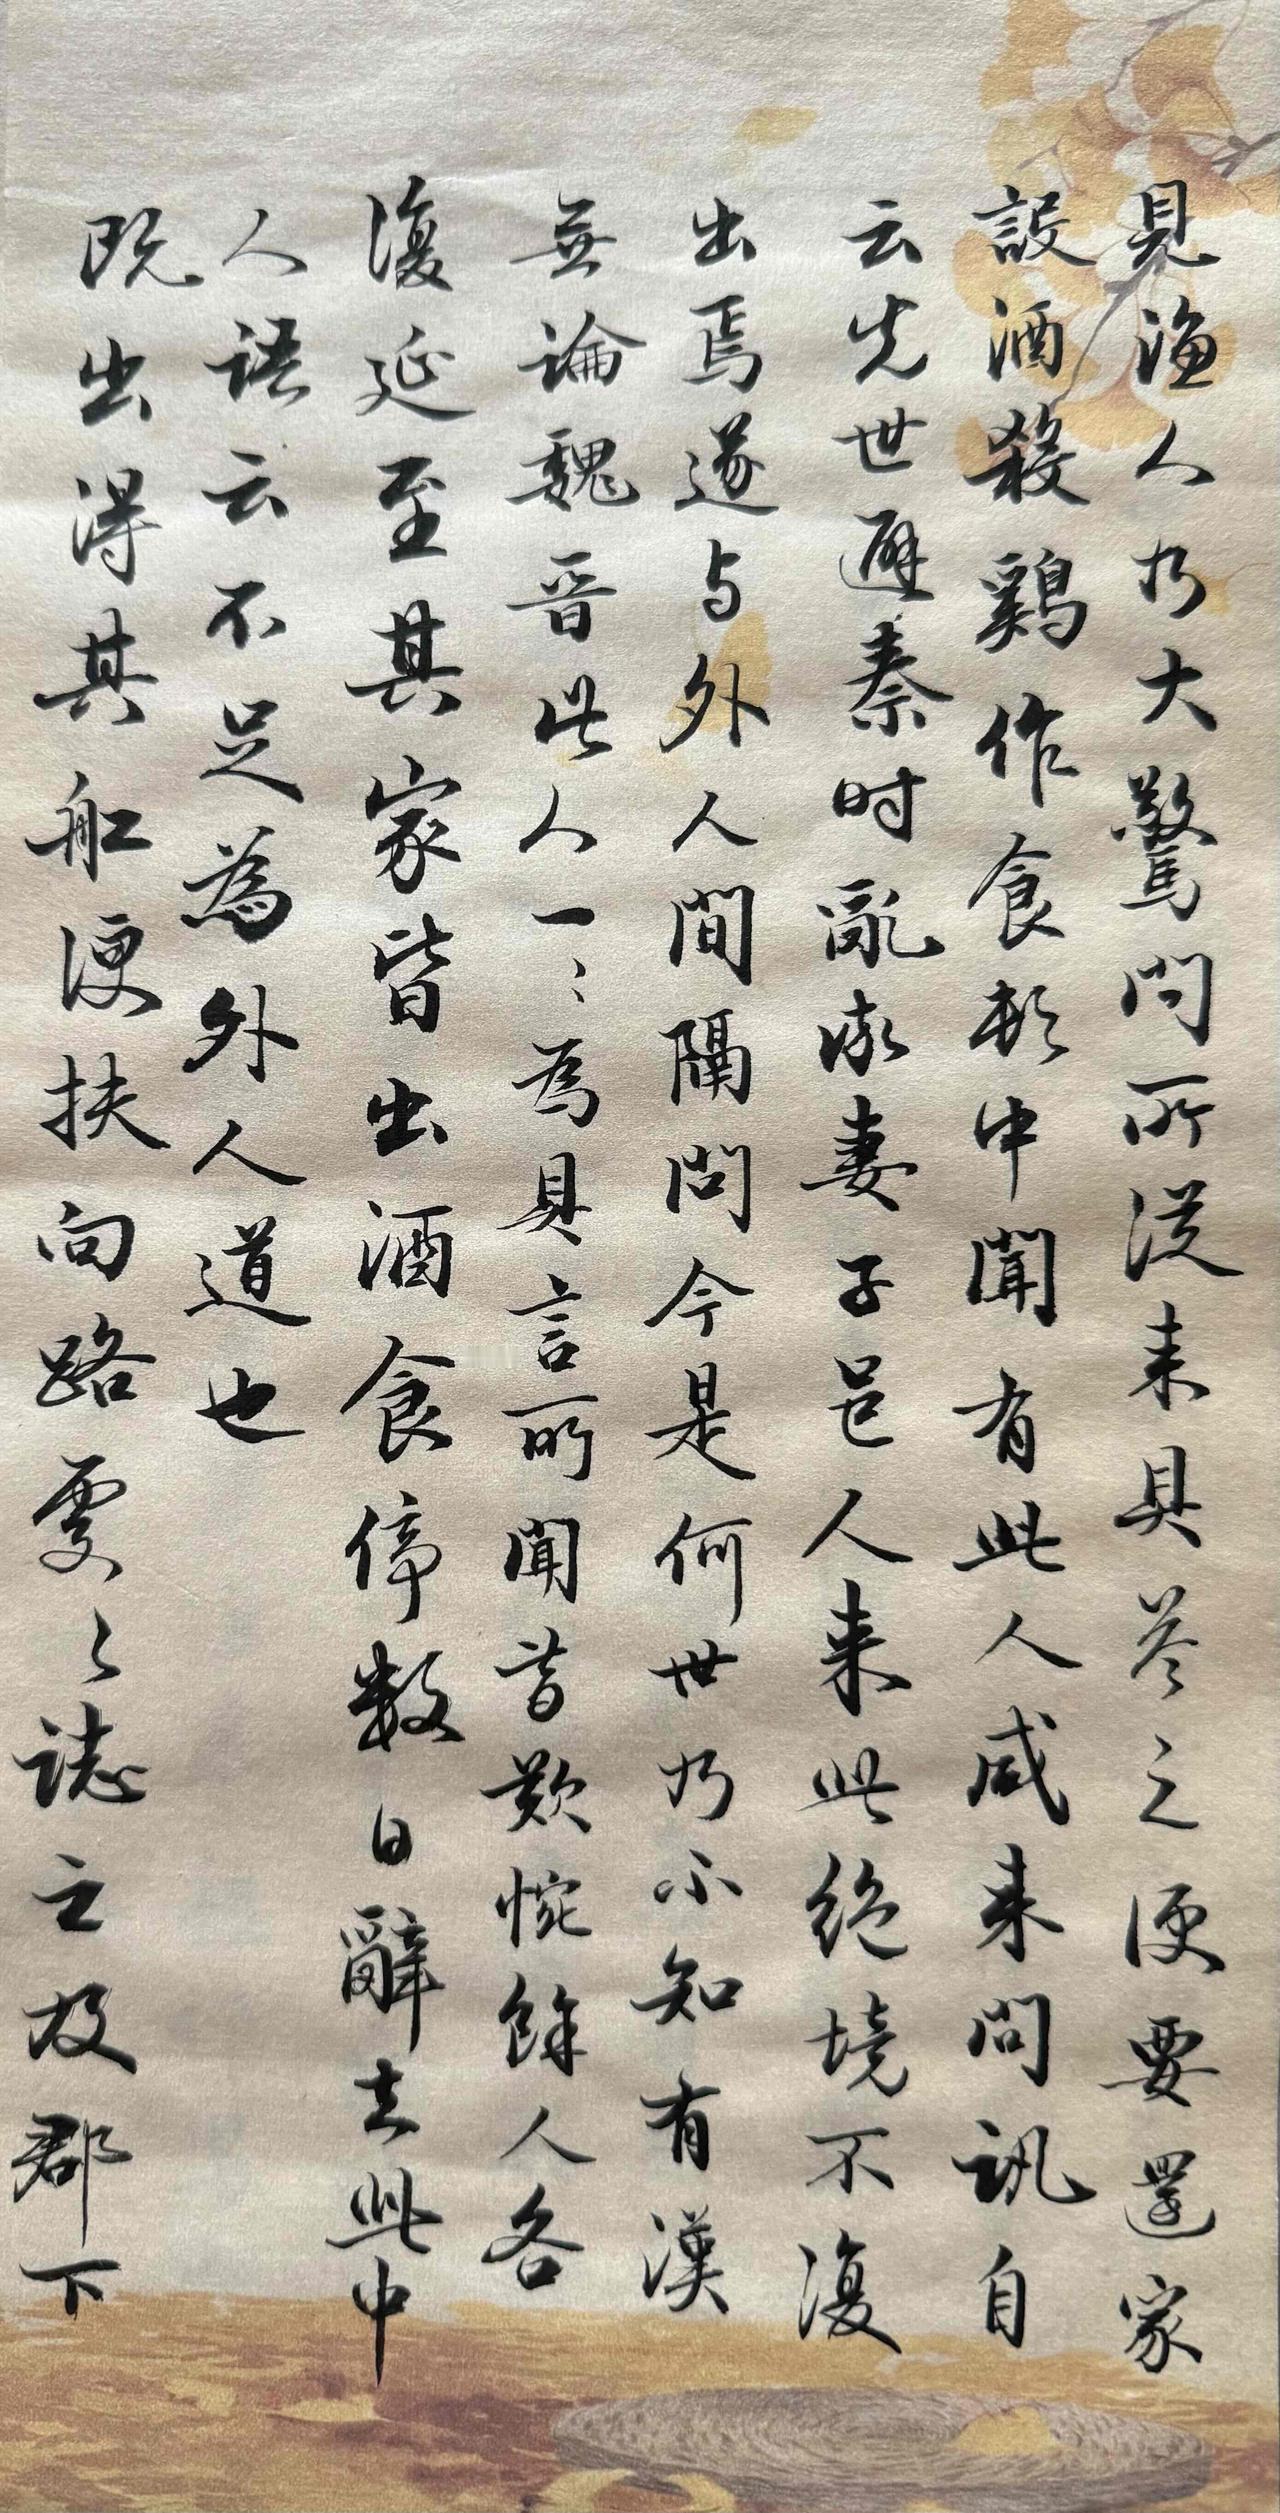 見漁人乃大驚問所從来具答之便要還家
設酒殺鷄作食村中聞有此人咸来問訊自
云先世避秦時亂率妻子邑人来此絶境不復
出焉遂与外人間隔問今是何世乃不知有漢
無論魏晋此人一〻為具言所聞皆歎惋餘人各
復延至其家皆出酒食停数日辭去此中
人語云不足為外人道也
既出得其船便扶向路處〻誌之及郡下